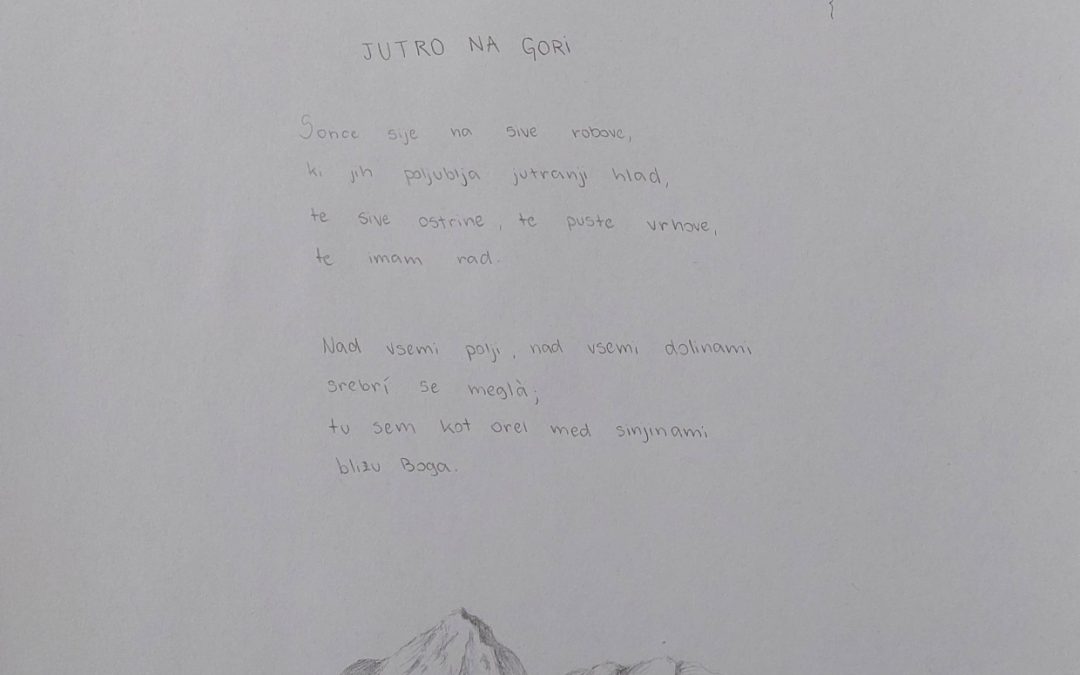 JUTRO NA GORI
Sonce sije na sive robove,
ki jih poljublja jutranji hlad,
te sive ostrine, te puste vrhove,
te imam rad.
Nad vsemi polji, nad vsemi dolinami
srebrí se meglà;
tu sem kot orel med sinjinami
blizu Boga.